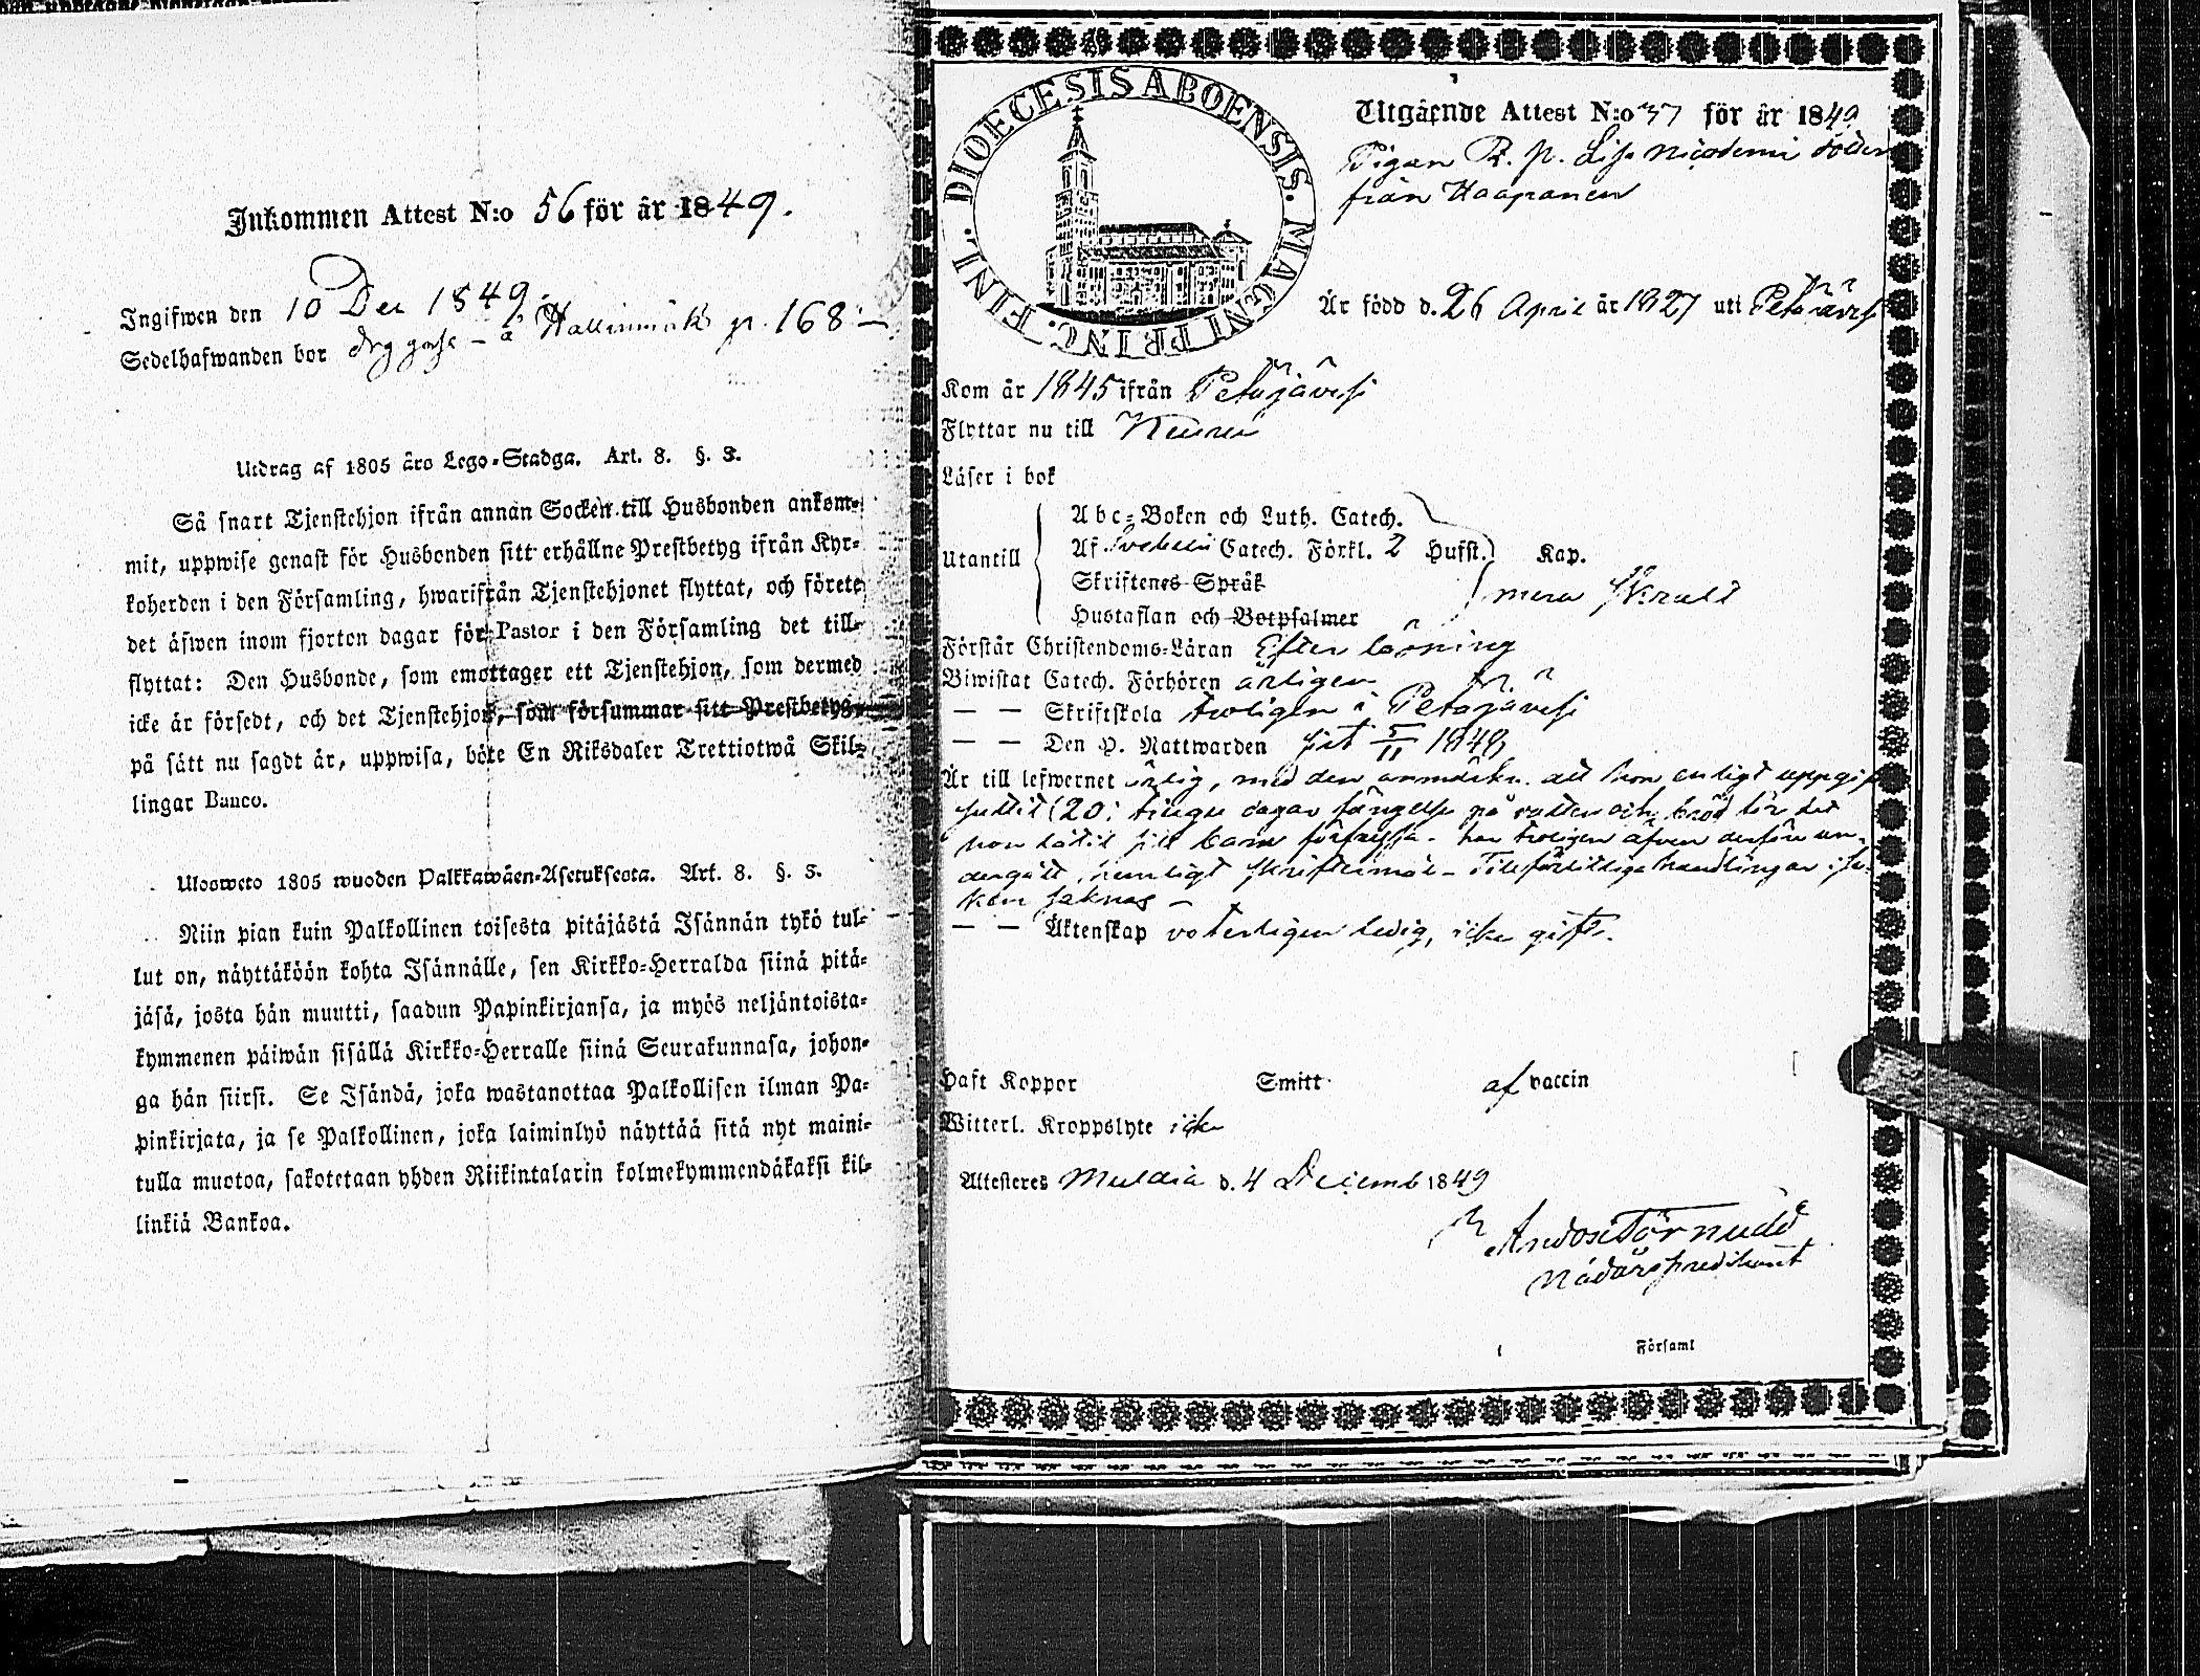 Inkommen Attest N:o 56 för år 1849.
Ingifwen den 10 Dec 1849
Sedelhafwanden bor på 168
Utdrag af 1805 års Lego-Stadga. Art. 8. §. 3.
Så snart Tjenstehjon ifrån annan Socken till Husbonden ankom-
mit, uppwise genast för Husbonden sitt erhållne Prestbetyg ifrån Kyr-
koherden i den Församling, hwarifrån Tjenstehjonet flyttat, och förete
det äfwen inom fjorton dagar för Pastor i den Församling det till-
flyttat: Den Husbonde, som emottager ett Tjenstehjon, som dermed
icke är försedt, och det Tjenstehjon, som försummar sitt Prestbetyg,
på sätt nu sagdt är, uppwisa, böte En Riksdaler Trettiotwå Skil-
lingar Banco.
Ulosweto 1805 wuoden Palkkawäen-Asetuksesta. Art. 8. §. 3.
Niin pian kuin Palkollinen toisesta pitäjästä Isännän tykö tul-
lut on, näyttäköön kohta Isännälle, sen Kirkko-Herralda siinä pitä-
jäsä, josta hän muutti, saadun Papinkirjansa, ja myös neljäntoista-
kymmenen päiwän sisällä Kirkko-Herralle siinä Seurakunnasa, johon-
ga hän siirsi. Se Isändä, joka wastanottaa Palkollisen ilman Pa-
pinkirjata, ja se Palkollinen, joka laiminlyö näyttää sitä nyt maini-
tulla muotoa, sakotetaan yhden Riikintalarin kolmekymmendäkaksi kil-
linkiä Bankoa.
FINL. DIOECESIS ABOENSIS. MAGNI PRINC.
Utgående Attest N:o 37 för år 1849
Pigan Lisa Nicodemi dotter
från Haapanen
Är född d. 26 April år 1827 uti Petäjävesi
Kom år 1845 ifrån Petäjävesi
Flyttar nu till Keuru
Läser i bok
Utantill
Abc-Boken och Luth. Catech.
Af Svebelii Catech. Förkl. 2 Hufst. Kap.
Skriftenes Språk
Hustaflan och Botpsalmer
mera
Förstår Christendoms-Läran Efter läsning
Biwistat Catech. Förhören årligen
— — Skriftskola troligen i Petäjävesi
— — Den H. Nattwarden sist 5/11 1848
Är till lefwernet ärlig, med den anmärkn. att hon enligt uppgift
suttit (20) tjugu dagar fängelse på vatten och bröd för det
hon låtit sitt barn har troligen äfven derföre un-
dergått hemligt skriftermål - Tillförlitliga handlingar i sa-
ken saknas -
— — Äktenskap veterligen ledig, icke gift.
Haft Koppor Smitt af vaccin
Witterl. Kroppslyte icke
Attesteres Multia d. 4 Decemb 1849
Törnudd
Församl